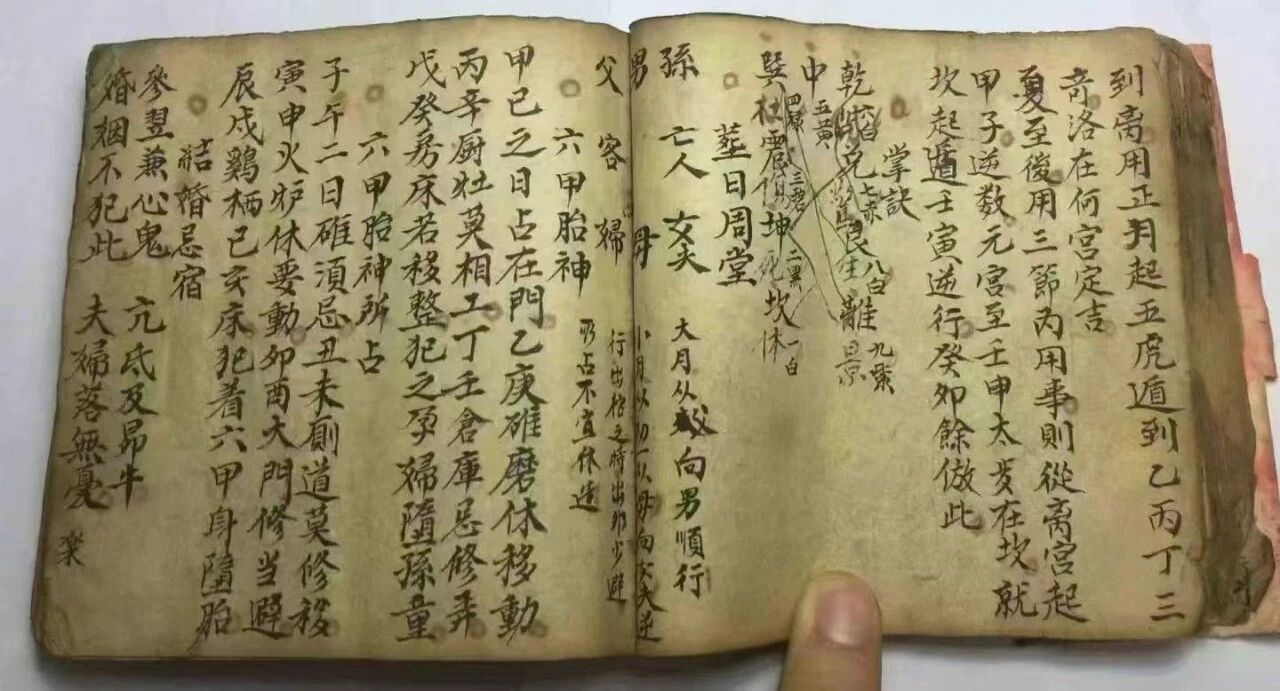 到离用正月起五虎遁到乙丙丁三
奇洛在何宮定吉
夏至後用三節內用事則從离宮起
甲子逆数元宮至壬申太歲在坎就
坎起遁壬寅逆行癸卯餘倣此
掌訣
乾六白 兌七赤 艮生八白 離景九紫
中五黃
巽杜四綠 震三碧 坤二黑 坎休一白
塟日周堂
孫 亡人 女夫 大月从父向男順行
男 母 小月从母向女夫逆
父 客 婦 行出棺之時出外少避
六甲胎神 所占不宜休造
甲己之日占在門乙庚碓磨休移動
丙辛厨灶莫相工丁壬倉庫忌修弄
戊癸房床若移整犯之孕婦墮孫童
六甲胎神所占
子午二日碓須忌丑未厠道莫修移
寅申火炉休要動卯酉大門修当避
辰戌鷄栖巳亥床犯着六甲身墮胎
結婚忌宿
參翌兼心鬼 亢氐及昴牛
婚姻不犯此 夫婦落無憂 楽